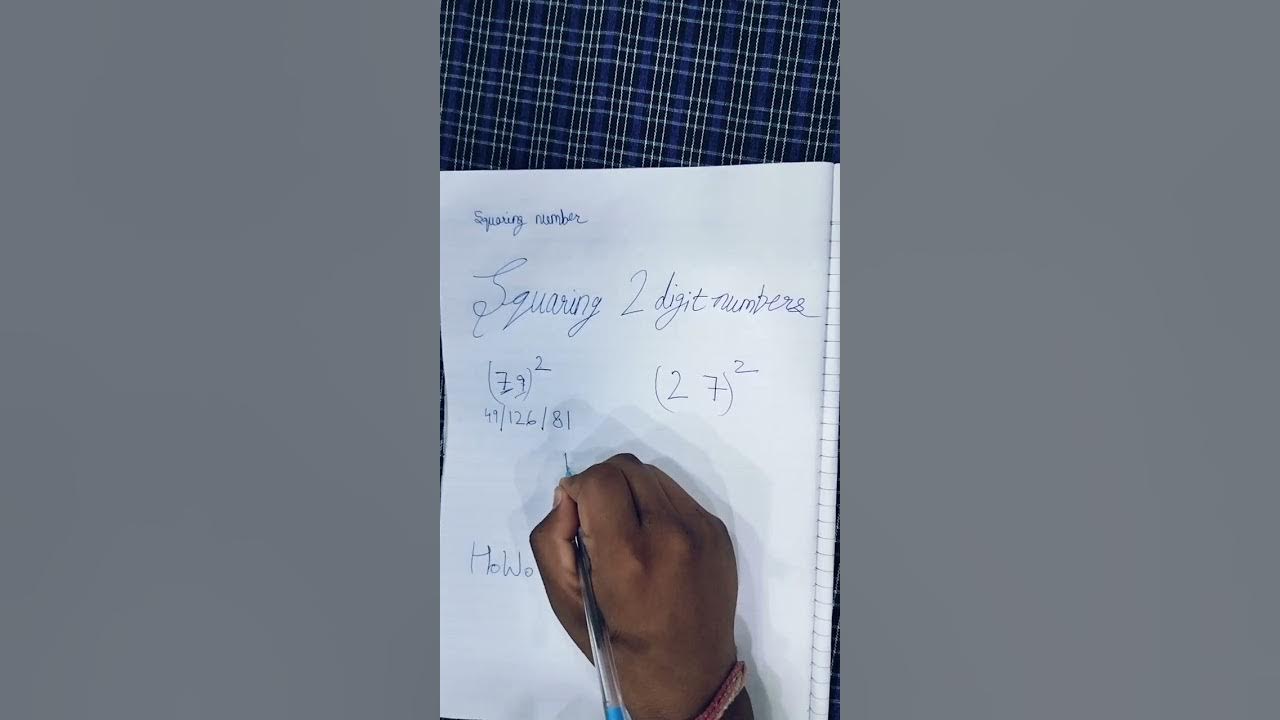 Squaring number
Squaring 2 digit numbers
(79)² (27)²
49/126/81
1
HoWo